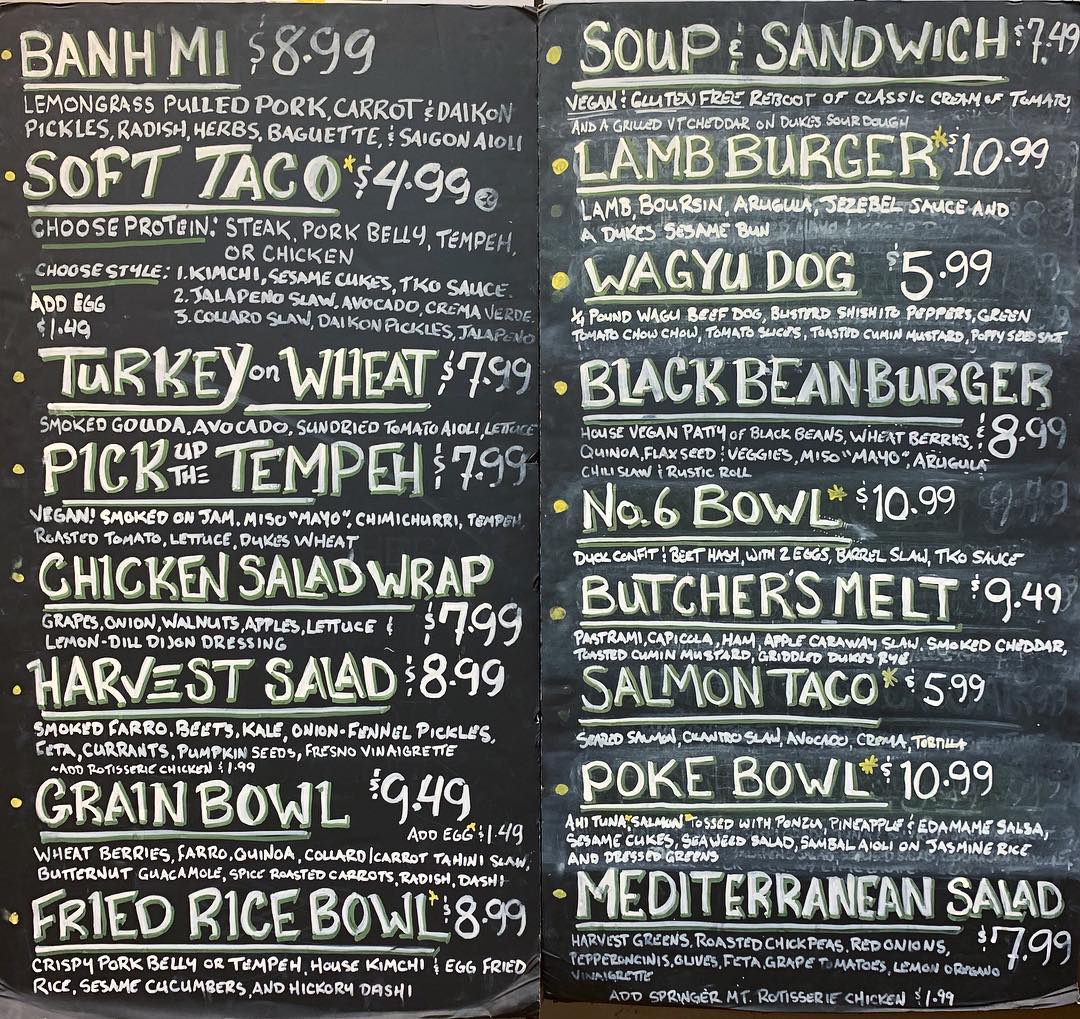 BANH MI $8.99
LEMONGRASS PULLED PORK, CARROT & DAIKON
PICKLES, RADISH, HERBS, BAGUETTE, & SAIGON AIOLI
SOFT TACO* $4.99
CHOOSE PROTEIN: STEAK, PORK BELLY, TEMPEH,
OR CHICKEN
CHOOSE STYLE: 1. KIMCHI, SESAME CUKES, TKO SAUCE
2. JALAPENO SLAW, AVOCADO, CREMA VERDE
3. COLLARD SLAW, DAIKON PICKLES, JALAPENO
ADD EGG
$1.49
TURKEY on WHEAT $7.99
SMOKED GOUDA, AVOCADO, SUNDRIED TOMATO AIOLI, LETTUCE
PICK UP THE TEMPEH $7.99
VEGAN! SMOKED ONION JAM, MISO "MAYO", CHIMICHURRI, TEMPEH,
ROASTED TOMATO, LETTUCE, DUKES WHEAT
CHICKEN SALAD WRAP
$7.99
GRAPES, ONION, WALNUTS, APPLES, LETTUCE &
LEMON-DILL DIJON DRESSING
HARVEST SALAD $8.99
SMOKED FARRO, BEETS, KALE, ONION-FENNEL PICKLES,
FETA, CURRANTS, PUMPKIN SEEDS, FRESNO VINAIGRETTE
~ADD ROTISSERIE CHICKEN $1.99
GRAIN BOWL $9.49
ADD EGG* $1.49
WHEAT BERRIES, FARRO, QUINOA, COLLARD/CARROT TAHINI SLAW,
BUTTERNUT GUACAMOLE, SPICE ROASTED CARROTS, RADISH, DASHI
FRIED RICE BOWL* $8.99
CRISPY PORK BELLY OR TEMPEH, HOUSE KIMCHI & EGG FRIED
RICE, SESAME CUCUMBERS, AND HICKORY DASHI
SOUP & SANDWICH $7.49
VEGAN & GLUTEN FREE REBOOT OF CLASSIC CREAM OF TOMATO
AND A GRILLED VT CHEDDAR ON DUKES SOURDOUGH
LAMB BURGER* $10.99
LAMB, BOURSIN, ARUGULA, JEZEBEL SAUCE AND
A DUKES SESAME BUN
WAGYU DOG $5.99
¼ POUND WAGU BEEF DOG, BUSTERD SHISHITO PEPPERS, GREEN
TOMATO CHOW CHOW, TOMATO SLICES, TOASTED CUMIN MUSTARD, POPPY SEED
BLACK BEAN BURGER
$8.99
HOUSE VEGAN PATTY OF BLACK BEANS, WHEAT BERRIES,
QUINOA, FLAX SEED & VEGGIES, MISO "MAYO", ARUGULA
CHILI SLAW & RUSTIC ROLL
No.6 BOWL* $10.99
DUCK CONFIT & BEET HASH, WITH 2 EGGS, BARREL SLAW, TKO SAUCE
BUTCHER'S MELT $9.49
PASTRAMI, CAPICOLA, HAM, APPLE CARAWAY SLAW, SMOKED CHEDDAR,
TOASTED CUMIN MUSTARD, GRIDDLED DUKES RYE
SALMON TACO* $5.99
SEARED SALMON, CILANTRO SLAW, AVOCADO, CREMA, TORTILLA
POKE BOWL* $10.99
AHI TUNA* SALMON* TOSSED WITH PONZU, PINEAPPLE & EDAMAME SALSA,
SESAME CUKES, SEAWEED SALAD, SAMBAL AIOLI ON JASMINE RICE
AND DRESSED GREENS
MEDITERRANEAN SALAD
$7.99
HARVEST GREENS, ROASTED CHICKPEAS, RED ONIONS,
PEPPERONCINIS, OLIVES, FETA, GRAPE TOMATOES, LEMON OREGANO
VINAIGRETTE
ADD SPRINGER MT. ROTISSERIE CHICKEN $1.99